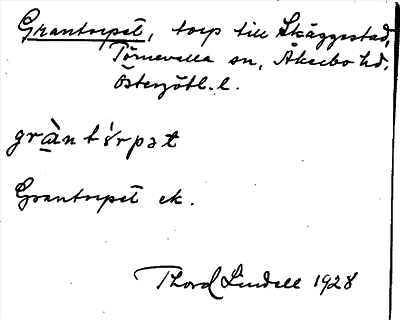 Grantorpet, torp till Skäggestad,
Törnevalla sn, Åkerbo hd.
Östergötl. l.
gràntórpət
Grantorpet ek.
Thord Lindell 1928